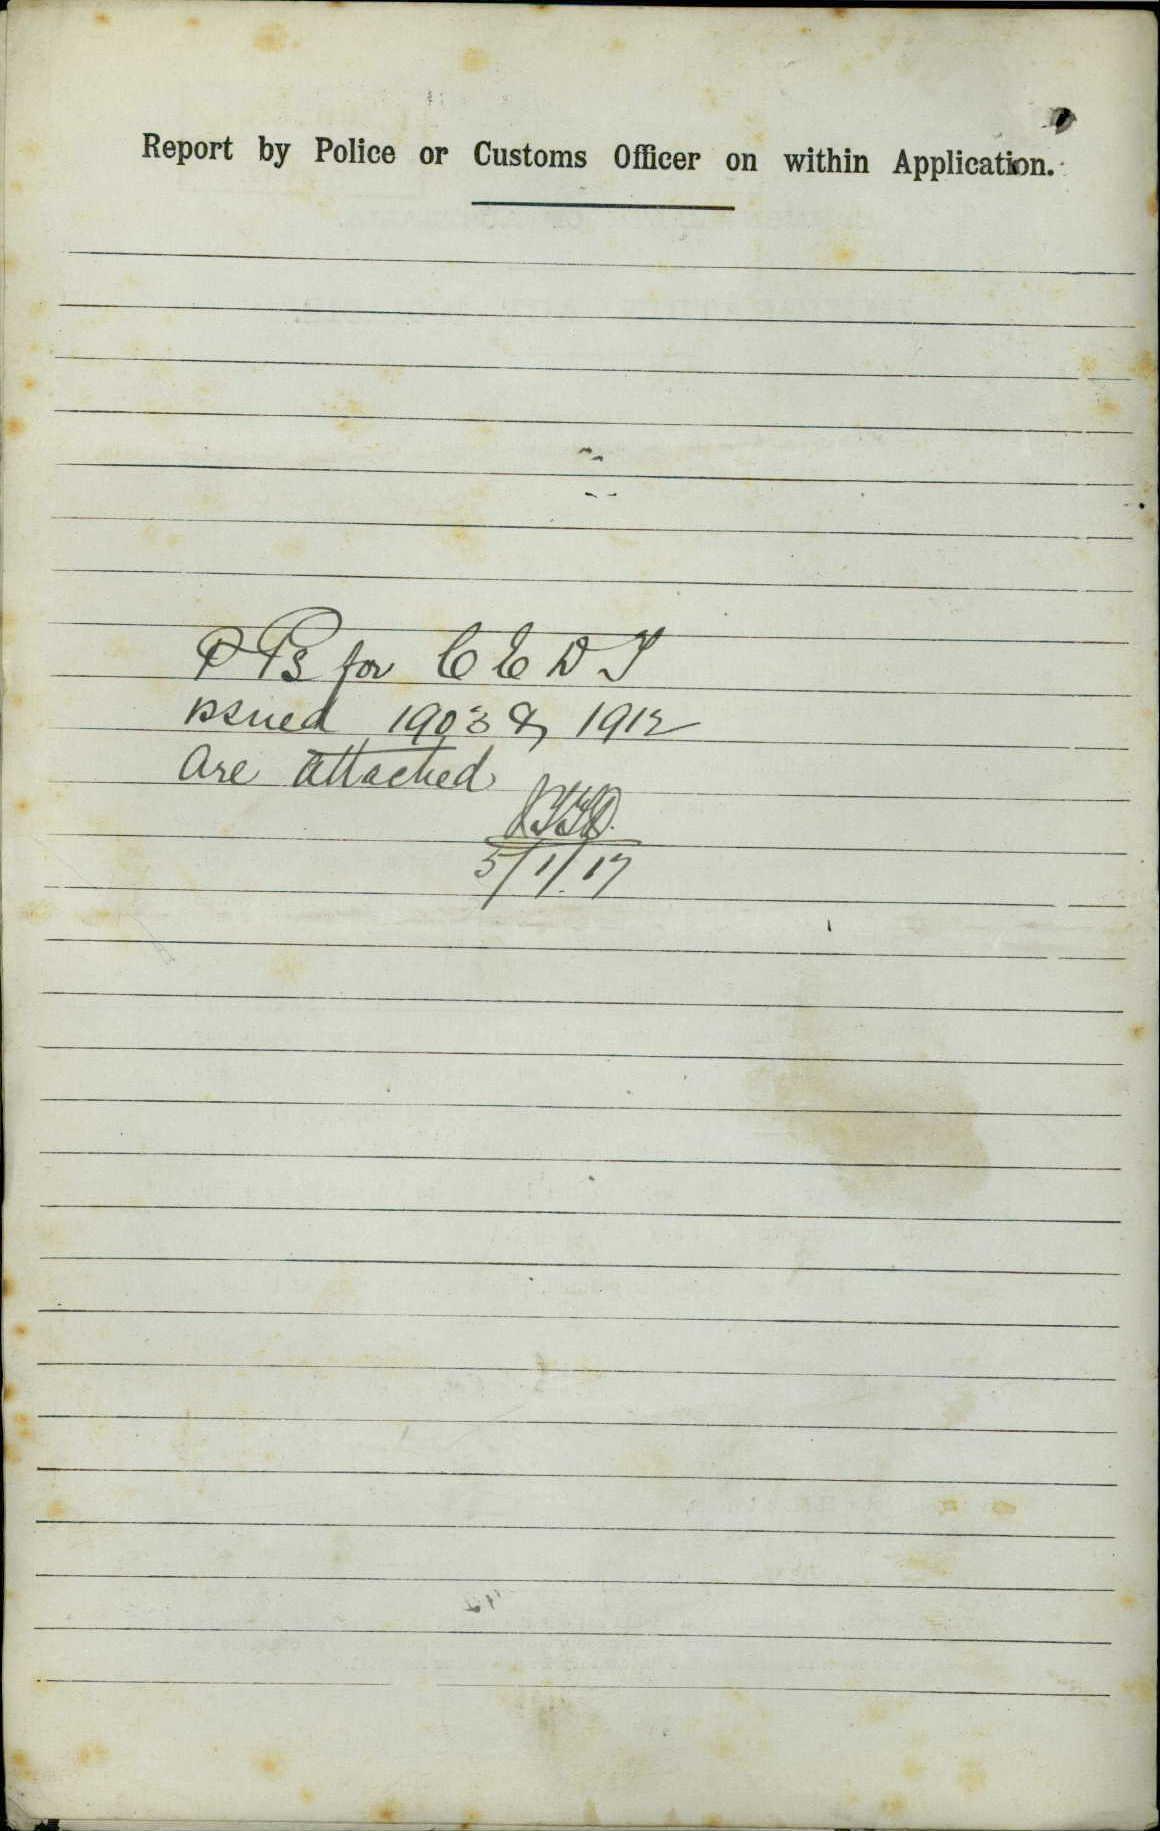 Report by Police or Customs Officer on within Application.
P Ps for C E D T
issued 1903 & 1912
are attached
5/1/17